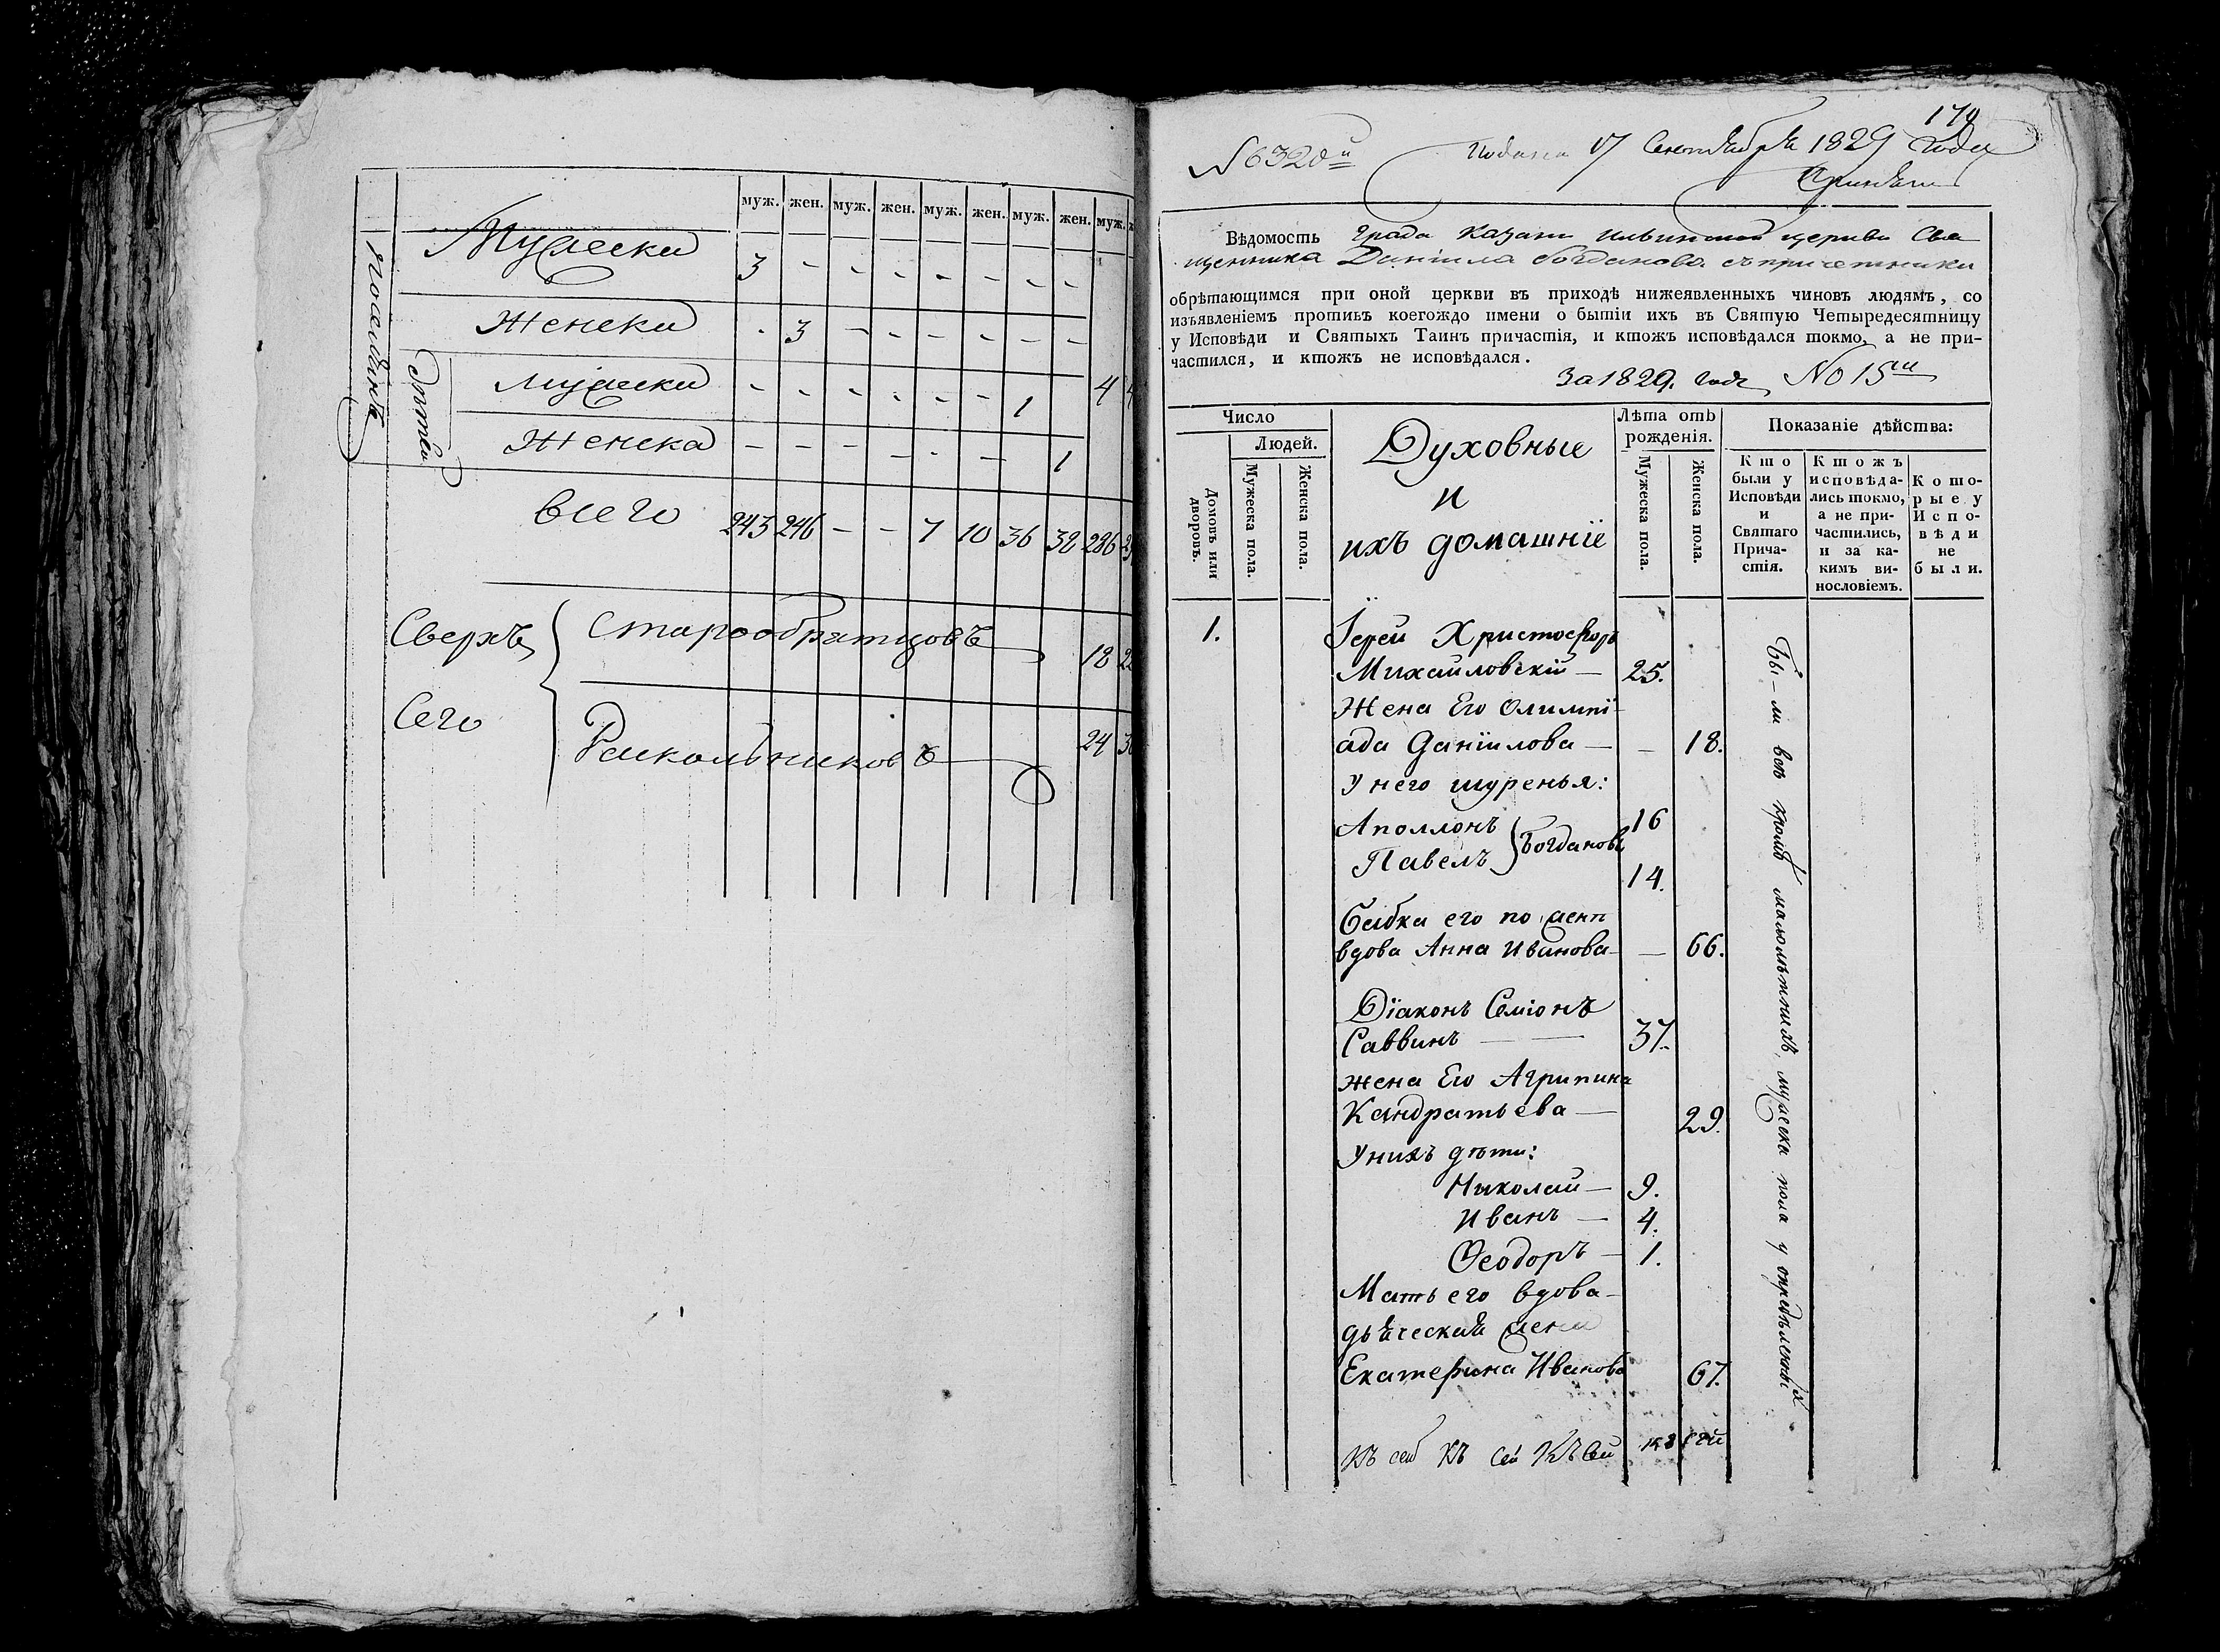 муж. жен. муж. жен. муж. жен. муж. жен. муж.
Посадскихъ
Мужеска 3 - - - - - - -
Женска - 3 - - - - - -
Дѣтей
мужеска - - - - - - 1 4
Женска - - - - - - 1
всего 243 246 - - 7 10 36 38 286
Сверхъ Старообрятцовъ 18
Сего Раскольниковъ 24
179
№ 6320й Подана 17 Сентября 1829 года
Вѣдомость Града Казани Ильинской церкви Свя
щенника Данiила Богданова съ причетники
обрѣтающимся при оной церкви въ приходѣ нижеявленныхъ чиновъ людямъ, со
изъявленіемъ противъ коегождо имени о бытіи ихъ въ Святую Четыредесятницу
у Исповѣди и Святыхъ Таинъ причастія, и ктожъ исповѣдался токмо, а не при-
частился, и ктожъ не исповѣдался.
За 1829. годъ № 15й
Число
Людей.
Домовъ или дворовъ.
Мужеска пола.
Женска пола.
Духовные
и
ихъ домашнïе
Лѣта отъ
рожденія.
Мужеска пола.
Женска пола.
Показаніе дѣйства:
Кто
были у
Исповѣди
и
Святаго
Прича-
стія.
Ктожъ
исповѣда-
лись токмо,
а не при-
частились,
и за ка-
кимъ ви-
нословіемъ.
Кото-
рые у
Испо-
вѣди
не
были.
1. Iерей Христофоръ
Михайловскiй — 25.
Жена Его Олимпï-
ада Данïилова — — 18.
У него шуренья:
Аполлонъ 16
Павелъ } Богдановы 14.
Бабка его по женѣ
вдова Анна Иванова — — 66.
Дïаконъ Семiонъ
Саввинъ — 37.
жена Его Агрипина
Кандратьева — 29.
У нихъ дѣти:
Николай — 9.
Иванъ — 4.
Ѳеодоръ — 1.
Мать его вдова
дьяческая жена
Екатерина Иванова 67.
Бы-ли всѣ кромѣ малолѣтнихъ, мужеска пола и опредѣленныхъ
Къ сей Къ сей Къ Сей